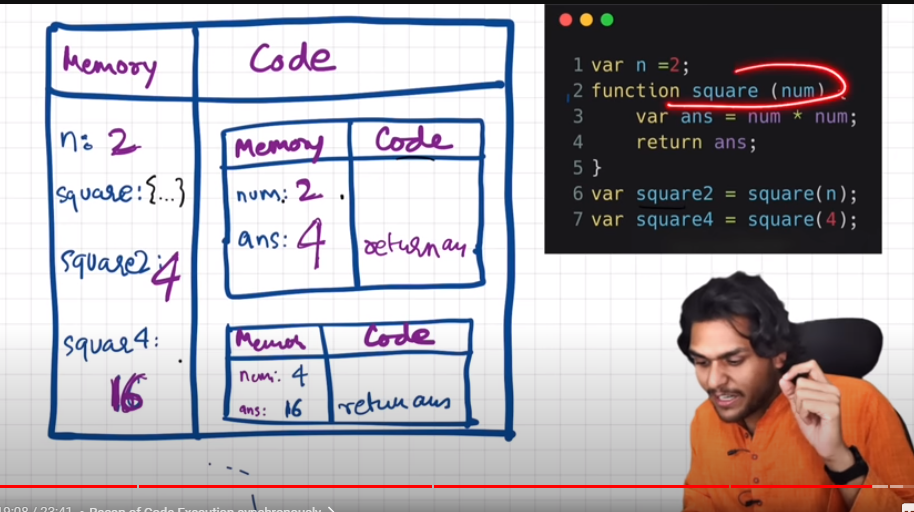 Memory
Code
n: 2
square: {...}
square2: 4
squar4:
16
Memory
Code
num: 2
ans: 4
return an
Memor
Code
num: 4
ans: 16
return ans
1 var n =2;
2 function square (num) {
3 var ans = num * num;
4 return ans;
5 }
6 var square2 = square(n);
7 var square4 = square(4);
19:08 / 23:41 • Recap of Code Execution synchronously >